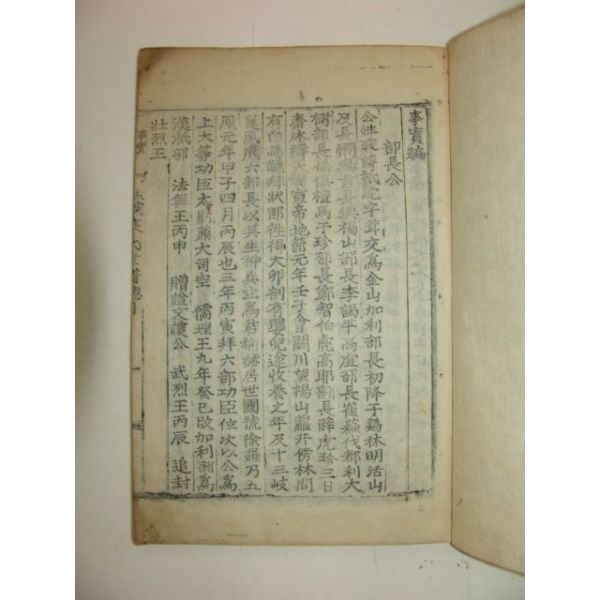 事實編
部長公
公姓裴諱祇沱字聱交爲金山加利部長初降于鷄林明活山
及長慨然與長與楊山部長李謁平高虛部長崔蘇伐都利大
樹部長孫俱禮馬于珍部長鄭智伯虎高耶部長薛虎珍三日
齋沐釋大漢宣帝地節元年壬子會閼川望楊山蘿井傍林間
有白馬跪拜狀卽往得大卵剖有嬰兒途收養之年及十三岐
嶷夙成六部長以其生神異立爲君稱赫居世國號徐羅乃五
鳳元年甲子四月丙辰也三年丙寅拜六部功臣位次以公爲
上大等功臣太尉兼大司空 儒理王九年癸巳改加利部爲
漢祇部 法興王丙申 贈諡文讓公 武烈王丙辰 追封
壯烈王